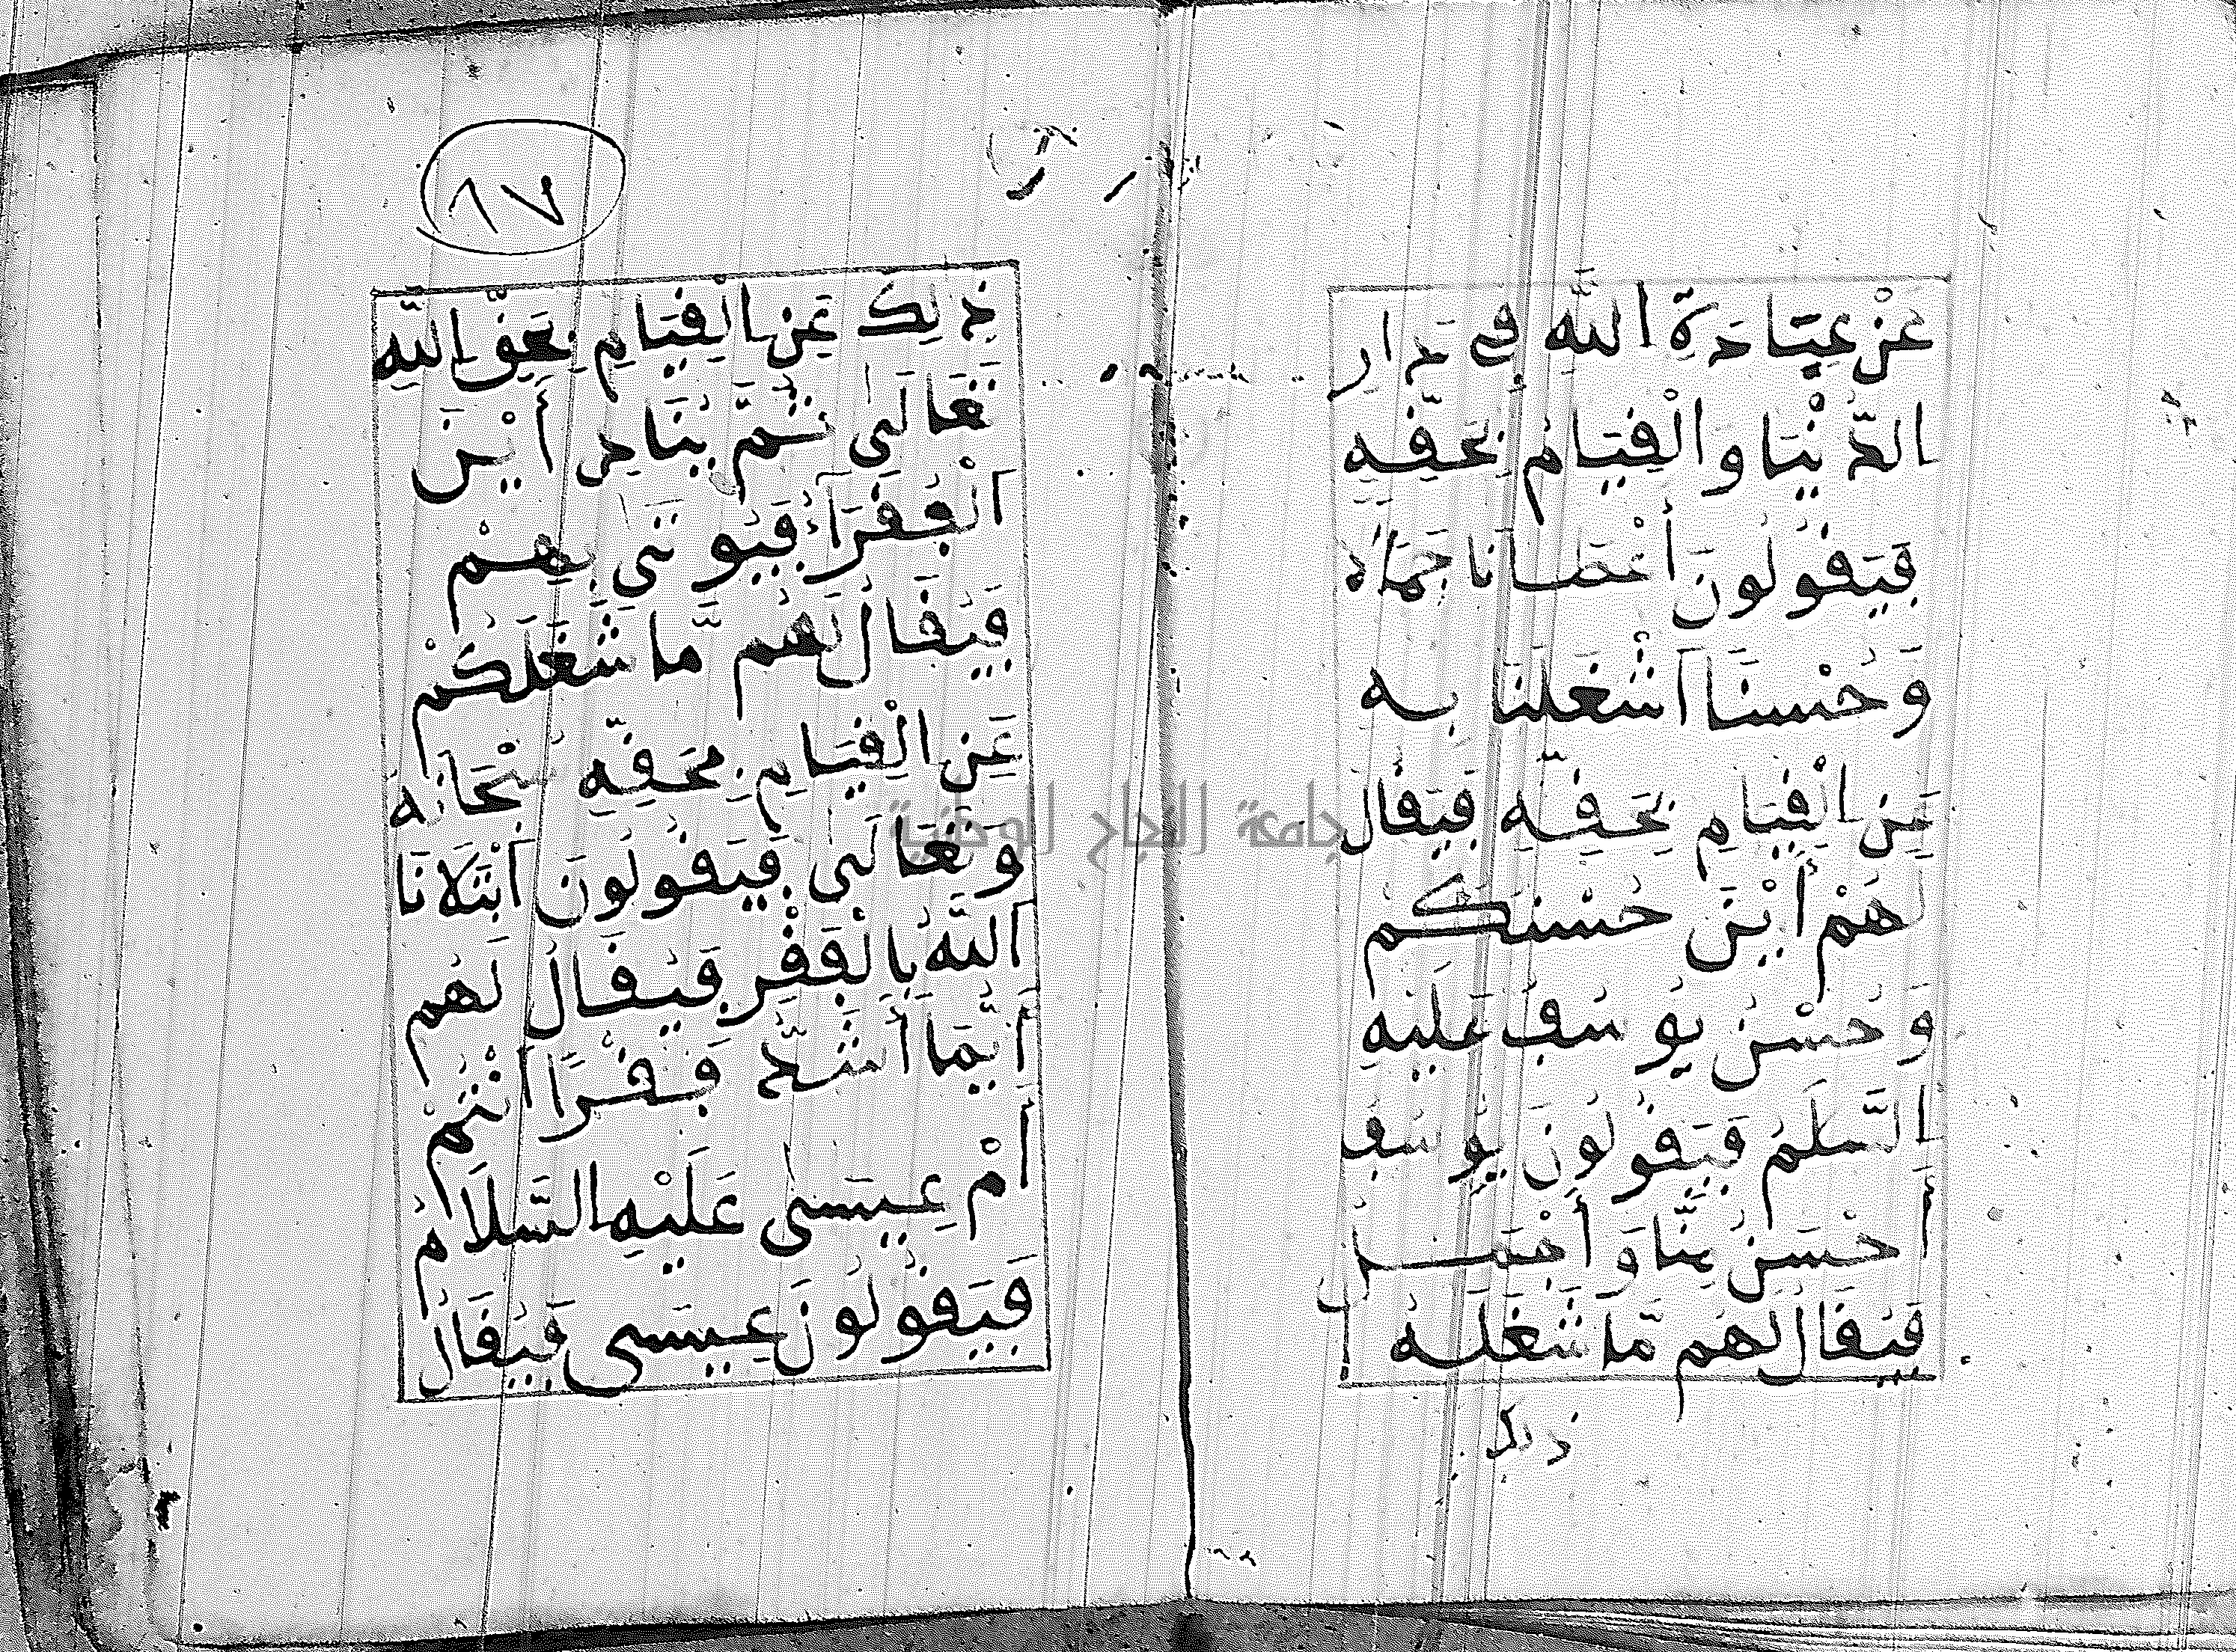 عَنْ عِبَادَةِ اللَّهِ فِي دَارِ
الدُّنْيَا وَالْقِيَامِ بِحَقِّهِ
فَيَقُولُونَ أَعْطَانَا جَمَالًا
وَحُسْنًا اَشْغَلَنَا بِهِ
عَنِ الْقِيَامِ بِحَقِّهِ فَيُقَالُ
لَهُمْ أَيْنَ حُسْنُكُمْ
وَحُسْنُ يُوسُفَ عَلَيْهِ
السَّلَمُ فَيَقُولُونَ يُوسُفُ
أَحْسَنُ مِنَّا وَأَجْمَلُ
فَيُقَالُ لَهُم مَّا شَغَلَهُ
ذلك
٨٧
ذَلِكَ عَنِ الْقِيَامِ بِحَقِّ اللَّهِ
تَعَالَى ثُمَّ يُنَادِ أَيْنَ
اَلْفُقَرَآءُ فَيُوتَى بِهِمْ
فَيُقَالُ لَهُم مَّا شَغَلَكُمْ
عَنِ الْقِيَامِ بِحَقِّهِ سُبْحَانَهُ
وَتَعَالَى فَيَقُولُونَ اَبْتَلَانَا
اَللَّهُ بِالْفَقْرِ فَيُقَالُ لَهُم
أَيُّمَا اَشَدُّ فَقْرًا اَنْتُمْ
أَمْ عِيسَى عَلَيْهِ السَّلَامُ
فَيَقُولُونَ عِيسَى فَيُقَالُ
جامعة النجاح الوطنية